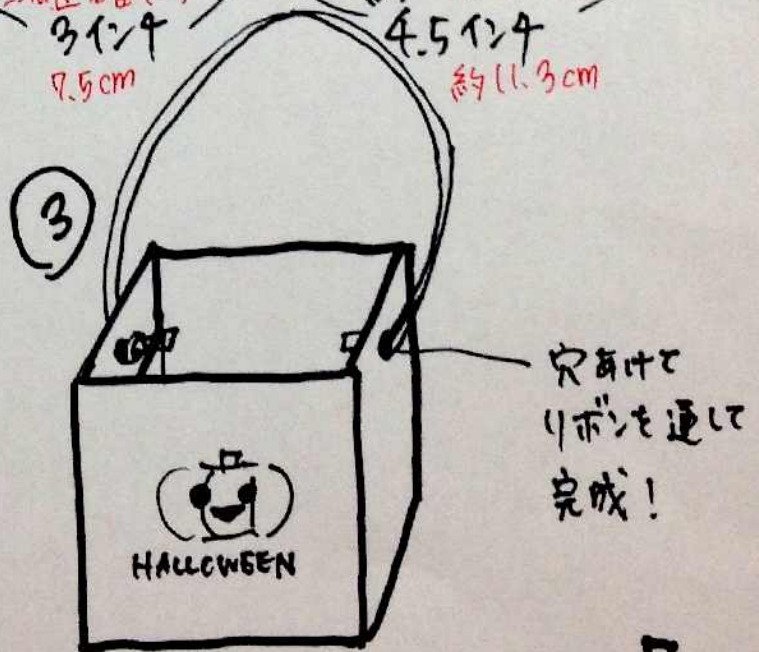 3インチ
7.5cm
4.5インチ
約11.3cm
3
穴あけて
リボンを通して
完成!
HALLOWEEN